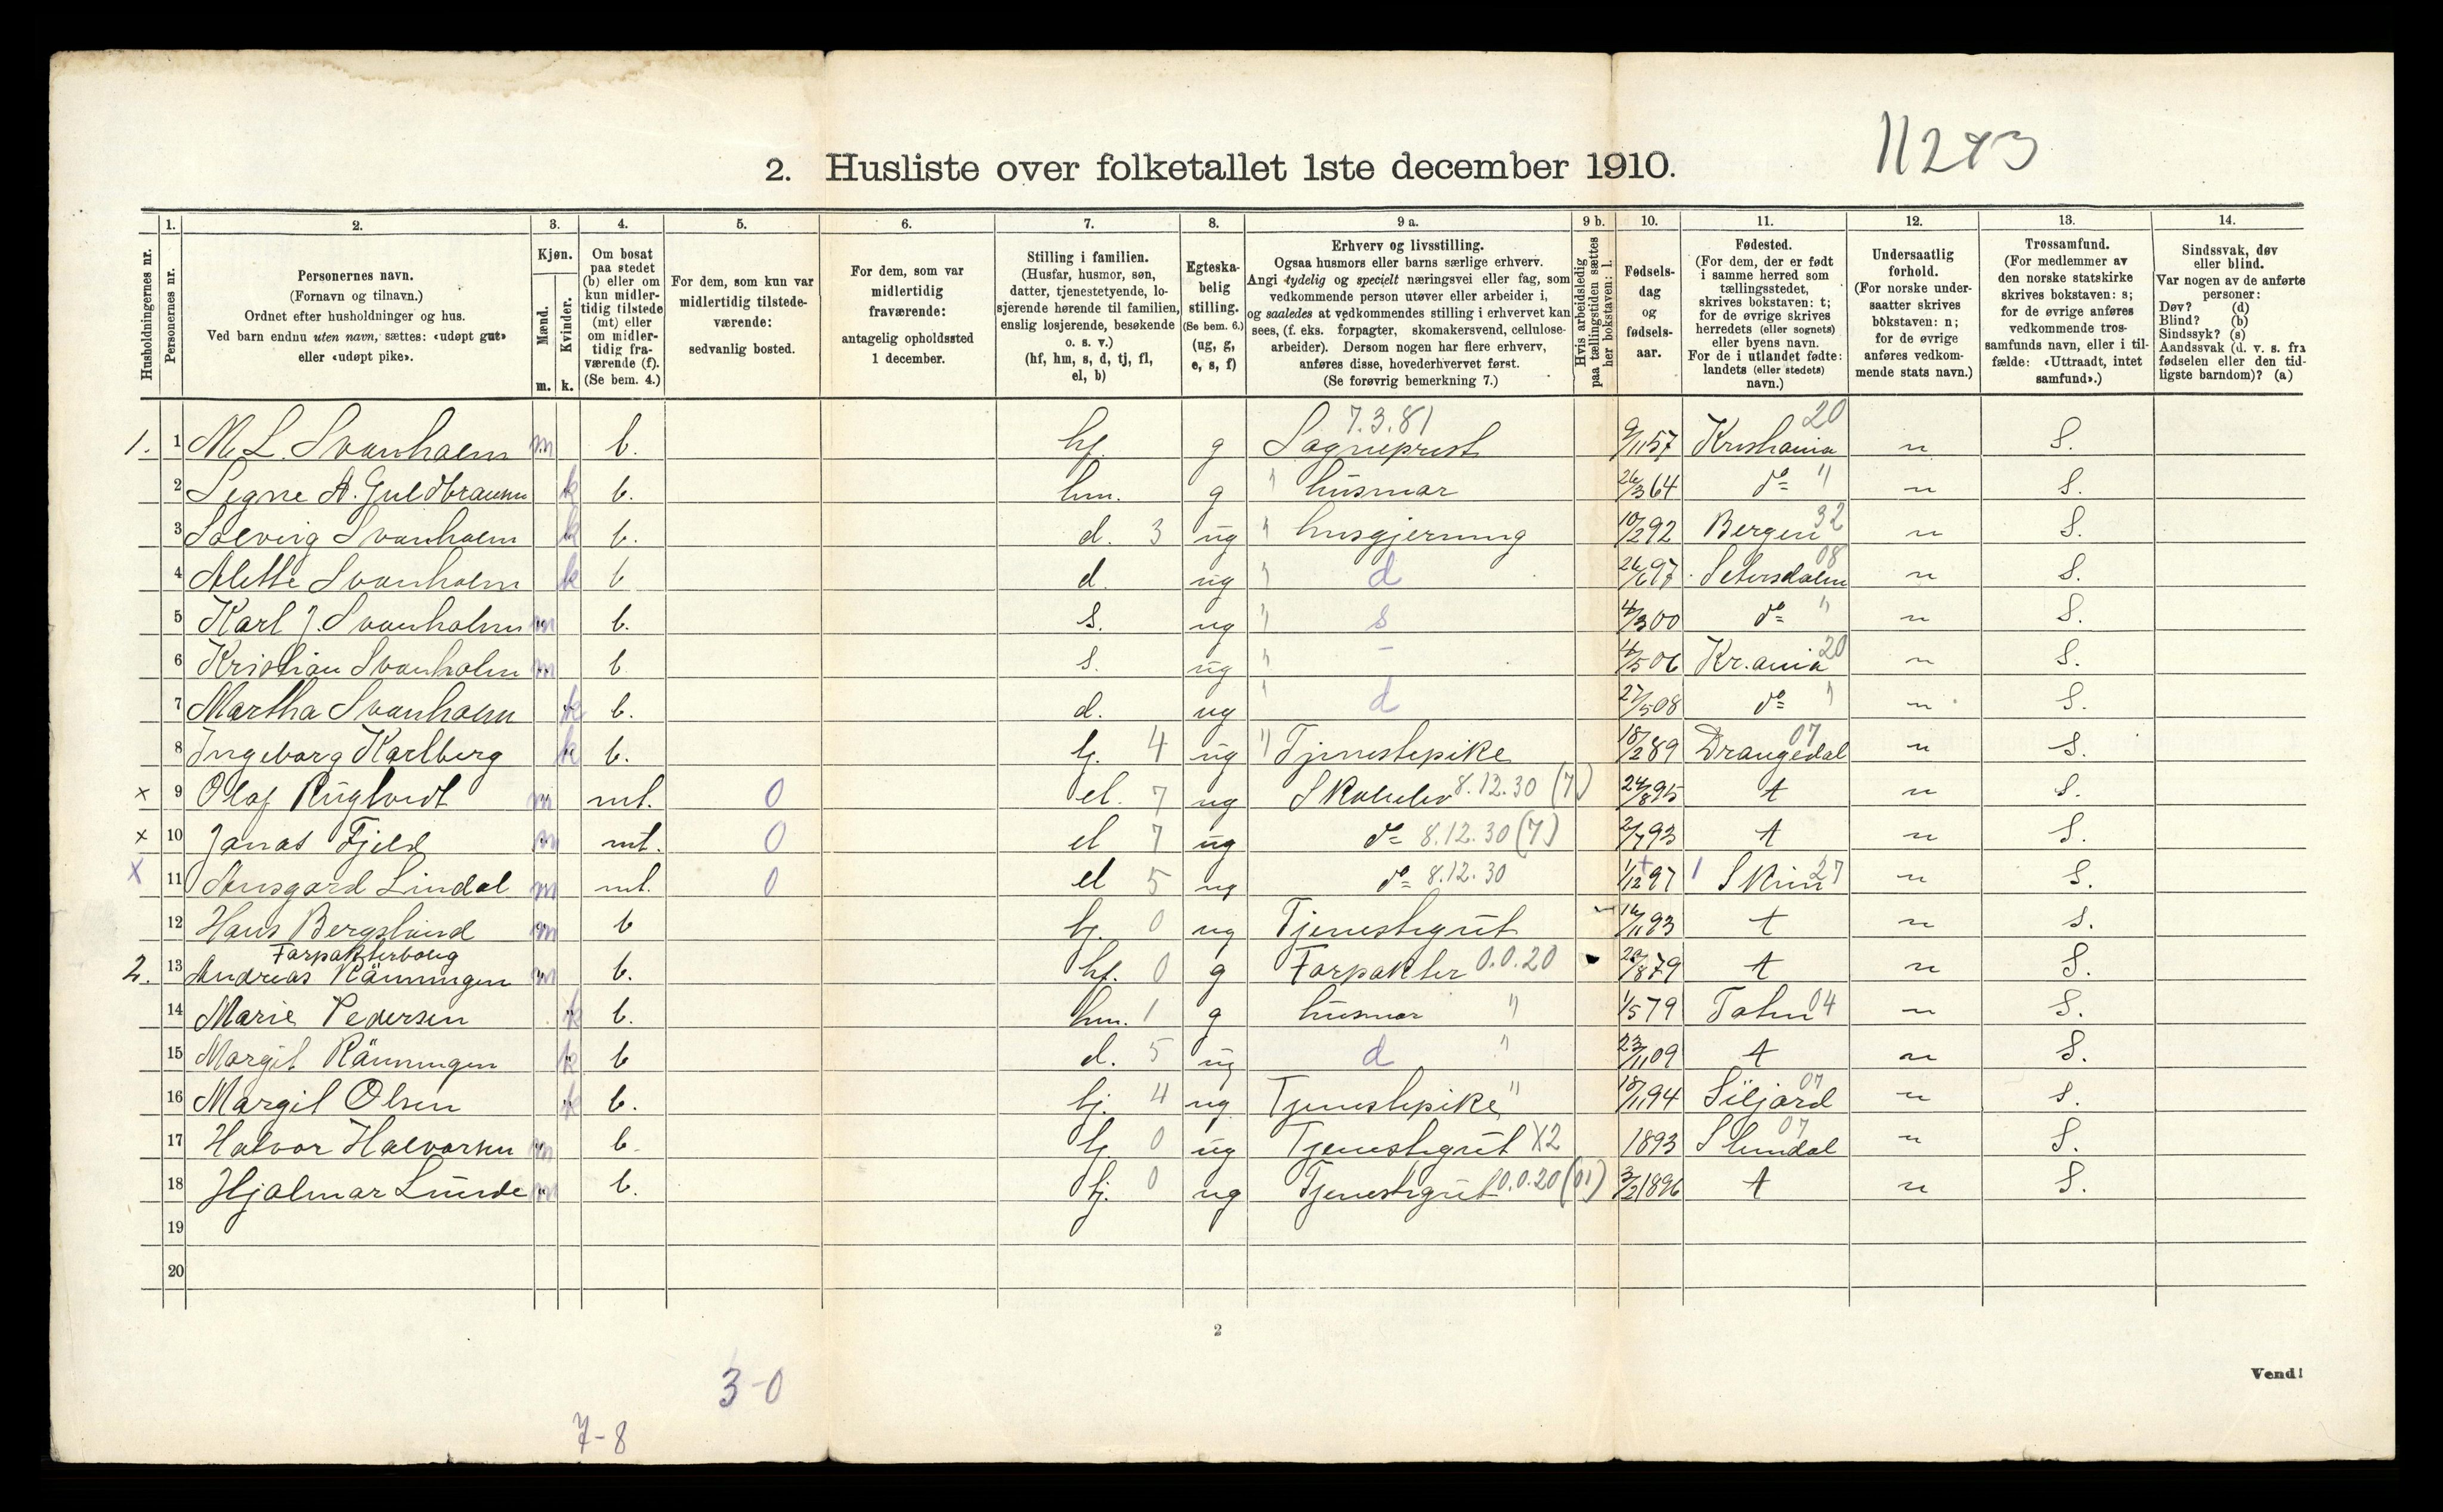 11273
2. Husliste over folketallet 1ste december 1910.
1. 2. 3. 4. 5. 6. 7. 8. 9 a. 9 b. 10. 11. 12. 13. 14.
Husholdningernes nr.
Personernes nr.
Personernes navn.
(Fornavn og tilnavn.)
Ordnet efter husholdninger og hus.
Ved barn endnu uten navn, sættes: «udøpt gut»
eller «udøpt pike».
Kjøn.
Mænd.
Kvinder.
m. k.
Om bosat
paa stedet
(b) eller om
kun midler-
tidig tilstede
(mt) eller
om midler-
tidig fra-
værende (f).
(Se bem. 4.)
For dem, som kun var
midlertidig tilstede-
værende:
sedvanlig bosted.
For dem, som var
midlertidig
fraværende:
antagelig opholdssted
1 december.
Stilling i familien.
(Husfar, husmor, søn,
datter, tjenestetyende, lo-
sjerende hørende til familien,
enslig losjerende, besøkende
o. s. v.)
(hf, hm, s, d, tj, fl,
el, b)
Egteska-
belig
stilling.
(Se bem. 6.)
(ug, g,
e, s, f)
Erhverv og livsstilling.
Ogsaa husmors eller barns særlige erhverv.
Angi tydelig og specielt næringsvei eller fag, som
vedkommende person utøver eller arbeider i,
og saaledes at vedkommendes stilling i erhvervet kan
sees, (f. eks. forpagter, skomakersvend, cellulose-
arbeider). Dersom nogen har flere erhverv,
anføres disse, hovederhvervet først.
(Se forøvrig bemerkning 7.)
Hvis arbeidsledig
paa tællingstiden sættes
her bokstaven: l.
Fødsels-
dag
og
fødsels-
aar.
Fødested.
(For dem, der er født
i samme herred som
tællingsstedet,
skrives bokstaven: t;
for de øvrige skrives
herredets (eller sognets)
eller byens navn.
For de i utlandet fødte:
landets (eller stedets)
navn.)
Undersaatlig
forhold.
(For norske under-
saatter skrives
bokstaven: n;
for de øvrige
anføres vedkom-
mende stats navn.)
Trossamfund.
(For medlemmer av
den norske statskirke
skrives bokstaven: s;
for de øvrige anføres
vedkommende tros-
samfunds navn, eller i til-
fælde: «Uttraadt, intet
samfund».)
Sindssvak, døv
eller blind.
Var nogen av de anførte
personer:
Døv? (d)
Blind? (b)
Sindssyk? (s)
Aandssvak (d. v. s. fra
fødselen eller den tid-
ligste barndom)? (a)
7.3.81 20
1. 1 M. L. Svanholm m b. hf. g Sogneprest 9/11 57 Kristiania n S.
2 Signe A. Guldbransen k b. hm. g " husmor 26/3 64 do " n S.
3 Solveig Svanholm k b. d. 3 ug " husgjerning 10/2 92 Bergen 32 n S.
4 Alette Svanholm k b d. ug " d 26/6 97 Setersdalen 08 n S.
5 Karl J. Svanholm m b. s. ug " s 4/3 00 do " n S.
6 Kristian Svanholm m b. s. ug " – 4/5 06 Kr.ania 20 n S.
7 Martha Svanholm k b. d. ug " d 27/5 08 do " n S.
8 Ingeborg Karlberg k b. tj. 4 ug " Tjenestepike 18/2 89 Drangedal 07 n S.
x 9 Olaf Rugtvedt m mt. 0 el. 7 ug Skoleelev 8.12.30 (7) 24/8 95 t n S.
x 10 Jonas Fjeld m mt. 0 el 7 ug do 8.12.30 (7) 2/7 93 t n S.
x 11 Ansgard Lindal m mt. 0 el 5 ug do 8.12.30 1/12 97 Skien 27 n S.
12 Hans Bergslund m b tj. 0 ug Tjenestegut 16/11 93 t n S.
Forpakterbolig
2. 13 Andreas Rönningen m b. hf. 0 g Forpakter 0.0.20 28/8 79 t n S.
14 Marie Pedersen k b. hm. 1 g husmor " 1/5 79 Toten 04 n S.
15 Margit Rönningen k b d. 5 ug d " 23/11 09 t n S.
16 Margit Olsen k b. tj. 4 ug Tjenestepike " 18/11 94 Siljord 07 n S.
17 Halvor Halvorsen m b. tj. 0 ug Tjenestegut X2 1893 Slemdal 07 n S.
18 Hjalmar Lunde m b. tj. 0 ug Tjenestegut 0.0.20 (01) 3/2 1896 t n S.
19
20
2
Vend!
3-0
7-8